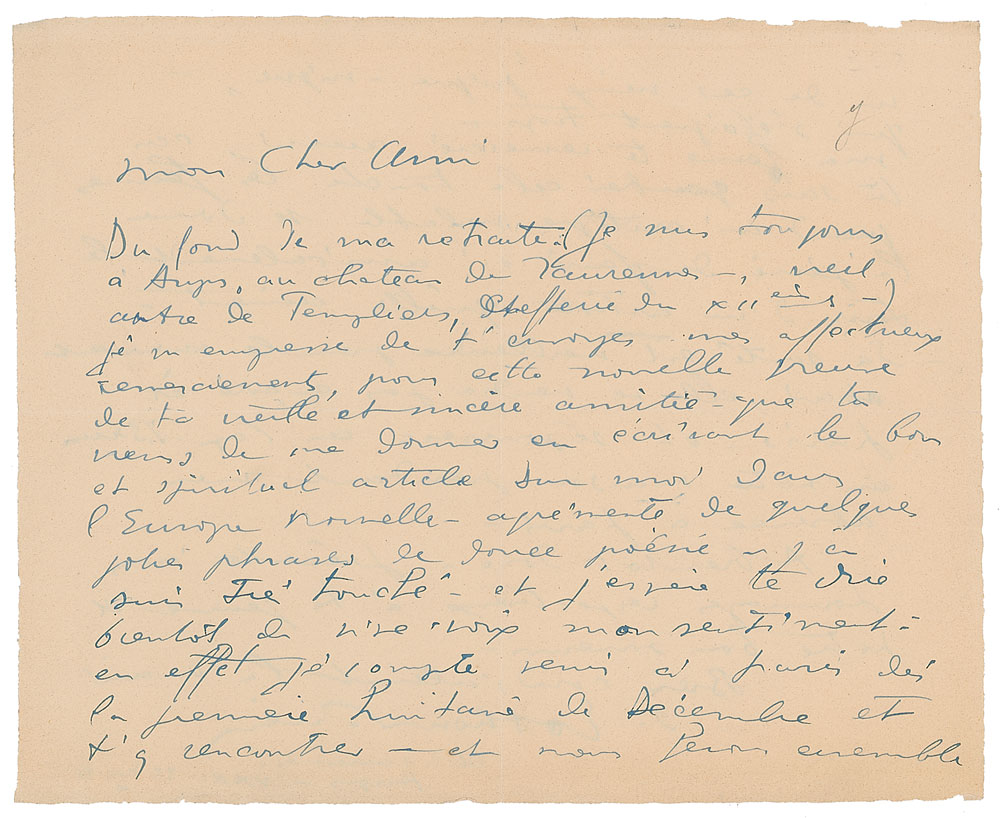 mon Cher Ami
Du fond de ma retraite. (Je suis toujours
à Aups, au chateau de Taurenne -, vieil
antre de Templiers, Chefferie du XIIème s -)
je m'empresse de t'envoyer mes affectueux
remerciements, pour cette nouvelle preuve
de ta vieille et sincère amitié - que tu
viens de me donner en écrivant le bon
et spirituel article sur moi dans
l'Europe nouvelle - agrémenté de quelques
jolies phrases de douce poésie - j'en
suis très touché - et j'espère te dire
bientôt de vive-voix mon sentiment -
en effet je compte venir à paris dès
la première huitaine de Décembre et
t'y rencontrer - et nous ferons ensemble